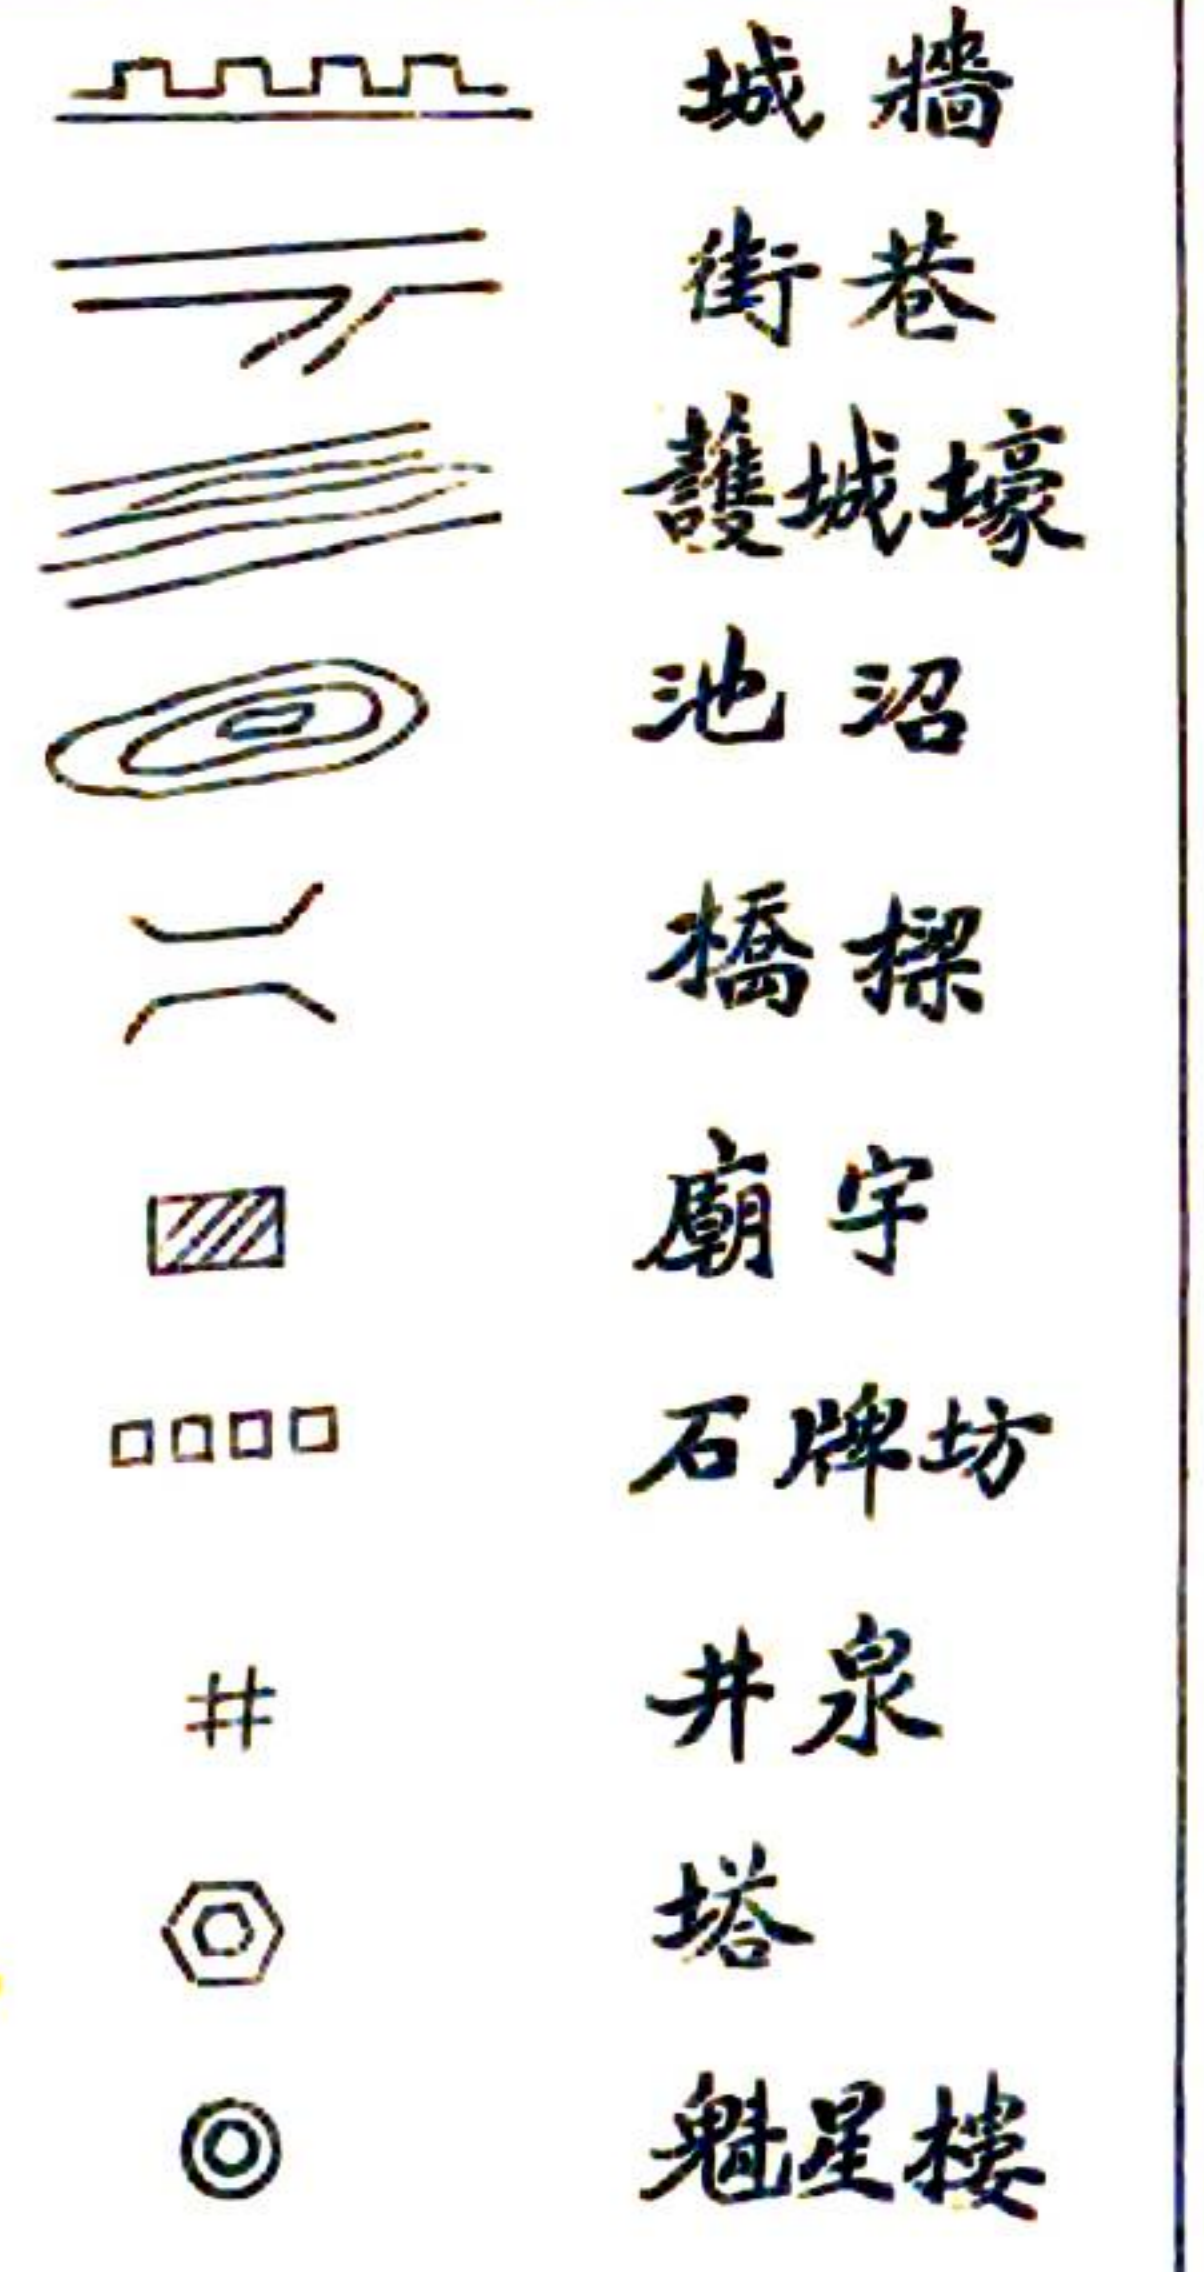 城牆
街巷
護城壕
池沼
橋樑
廟宇
石牌坊
井泉
塔
魁星樓